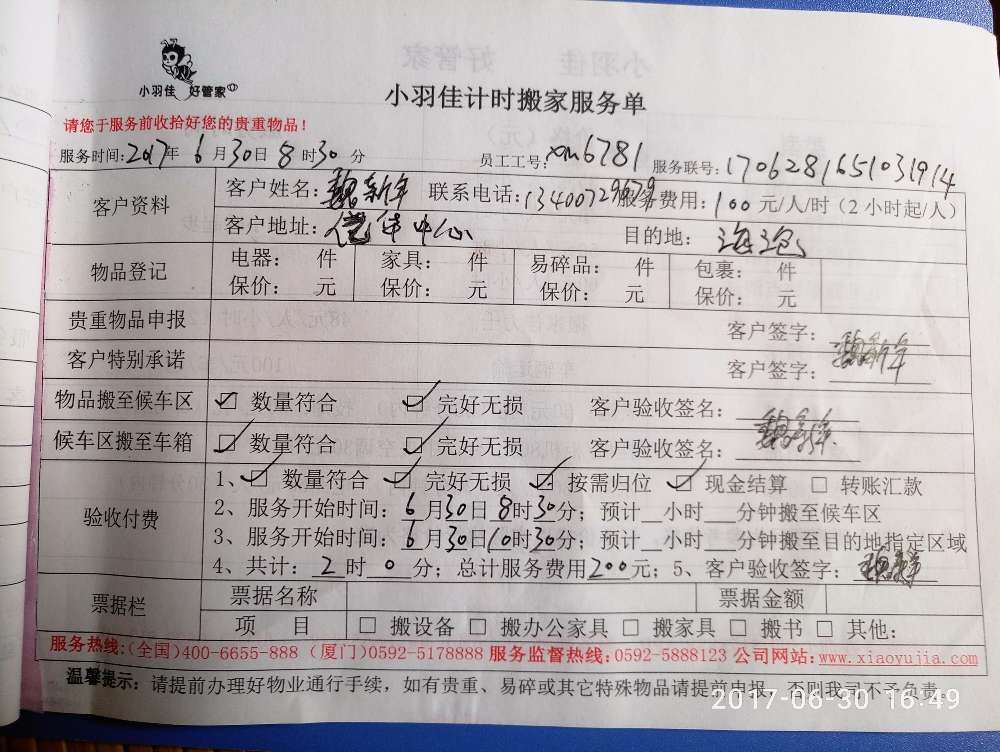 小羽佳 好管家
小羽佳计时搬家服务单
请您于服务前收拾好您的贵重物品！
服务时间:2017年 6月30日 8时30分 员工工号:xm6781 服务联号:1706281651031914
客户资料 客户姓名:魏新年 联系电话:13400729679 服务费用:100元/人/时（2小时起/人）
客户地址: 中心 目的地:海沧
物品登记 电器： 件 家具： 件 易碎品： 件 包裹： 件
保价： 元 保价： 元 保价： 元 保价： 元
贵重物品申报 客户签字：
客户特别承诺 客户签字：魏新年
物品搬至候车区 ☑ 数量符合 ☑ 完好无损 客户验收签名：
候车区搬至车箱 ☑ 数量符合 ☑ 完好无损 客户验收签名：魏新年
验收付费 1、☑ 数量符合 ☑ 完好无损 ☑ 按需归位 ☑ 现金结算 □ 转账汇款
2、服务开始时间：6月30日8时30分；预计__小时___分钟搬至候车区
3、服务开始时间：6月30日10时30分；预计__小时___分钟搬至目的地指定区域
4、共计：2时0分；总计服务费用200元；5、客户验收签字：魏新年
票据栏 票据名称 票据金额
项 目 □ 搬设备 □ 搬办公家具 □ 搬家具 □ 搬书 □ 其他：
服务热线:(全国)400-6655-888 (厦门)0592-5178888 服务监督热线:0592-5888123 公司网站:www.xiaoyujia.com
温馨提示：请提前办理好物业通行手续，如有贵重、易碎或其它特殊物品请提前申报，否则我司不予负责。
2017-06-30 16:49